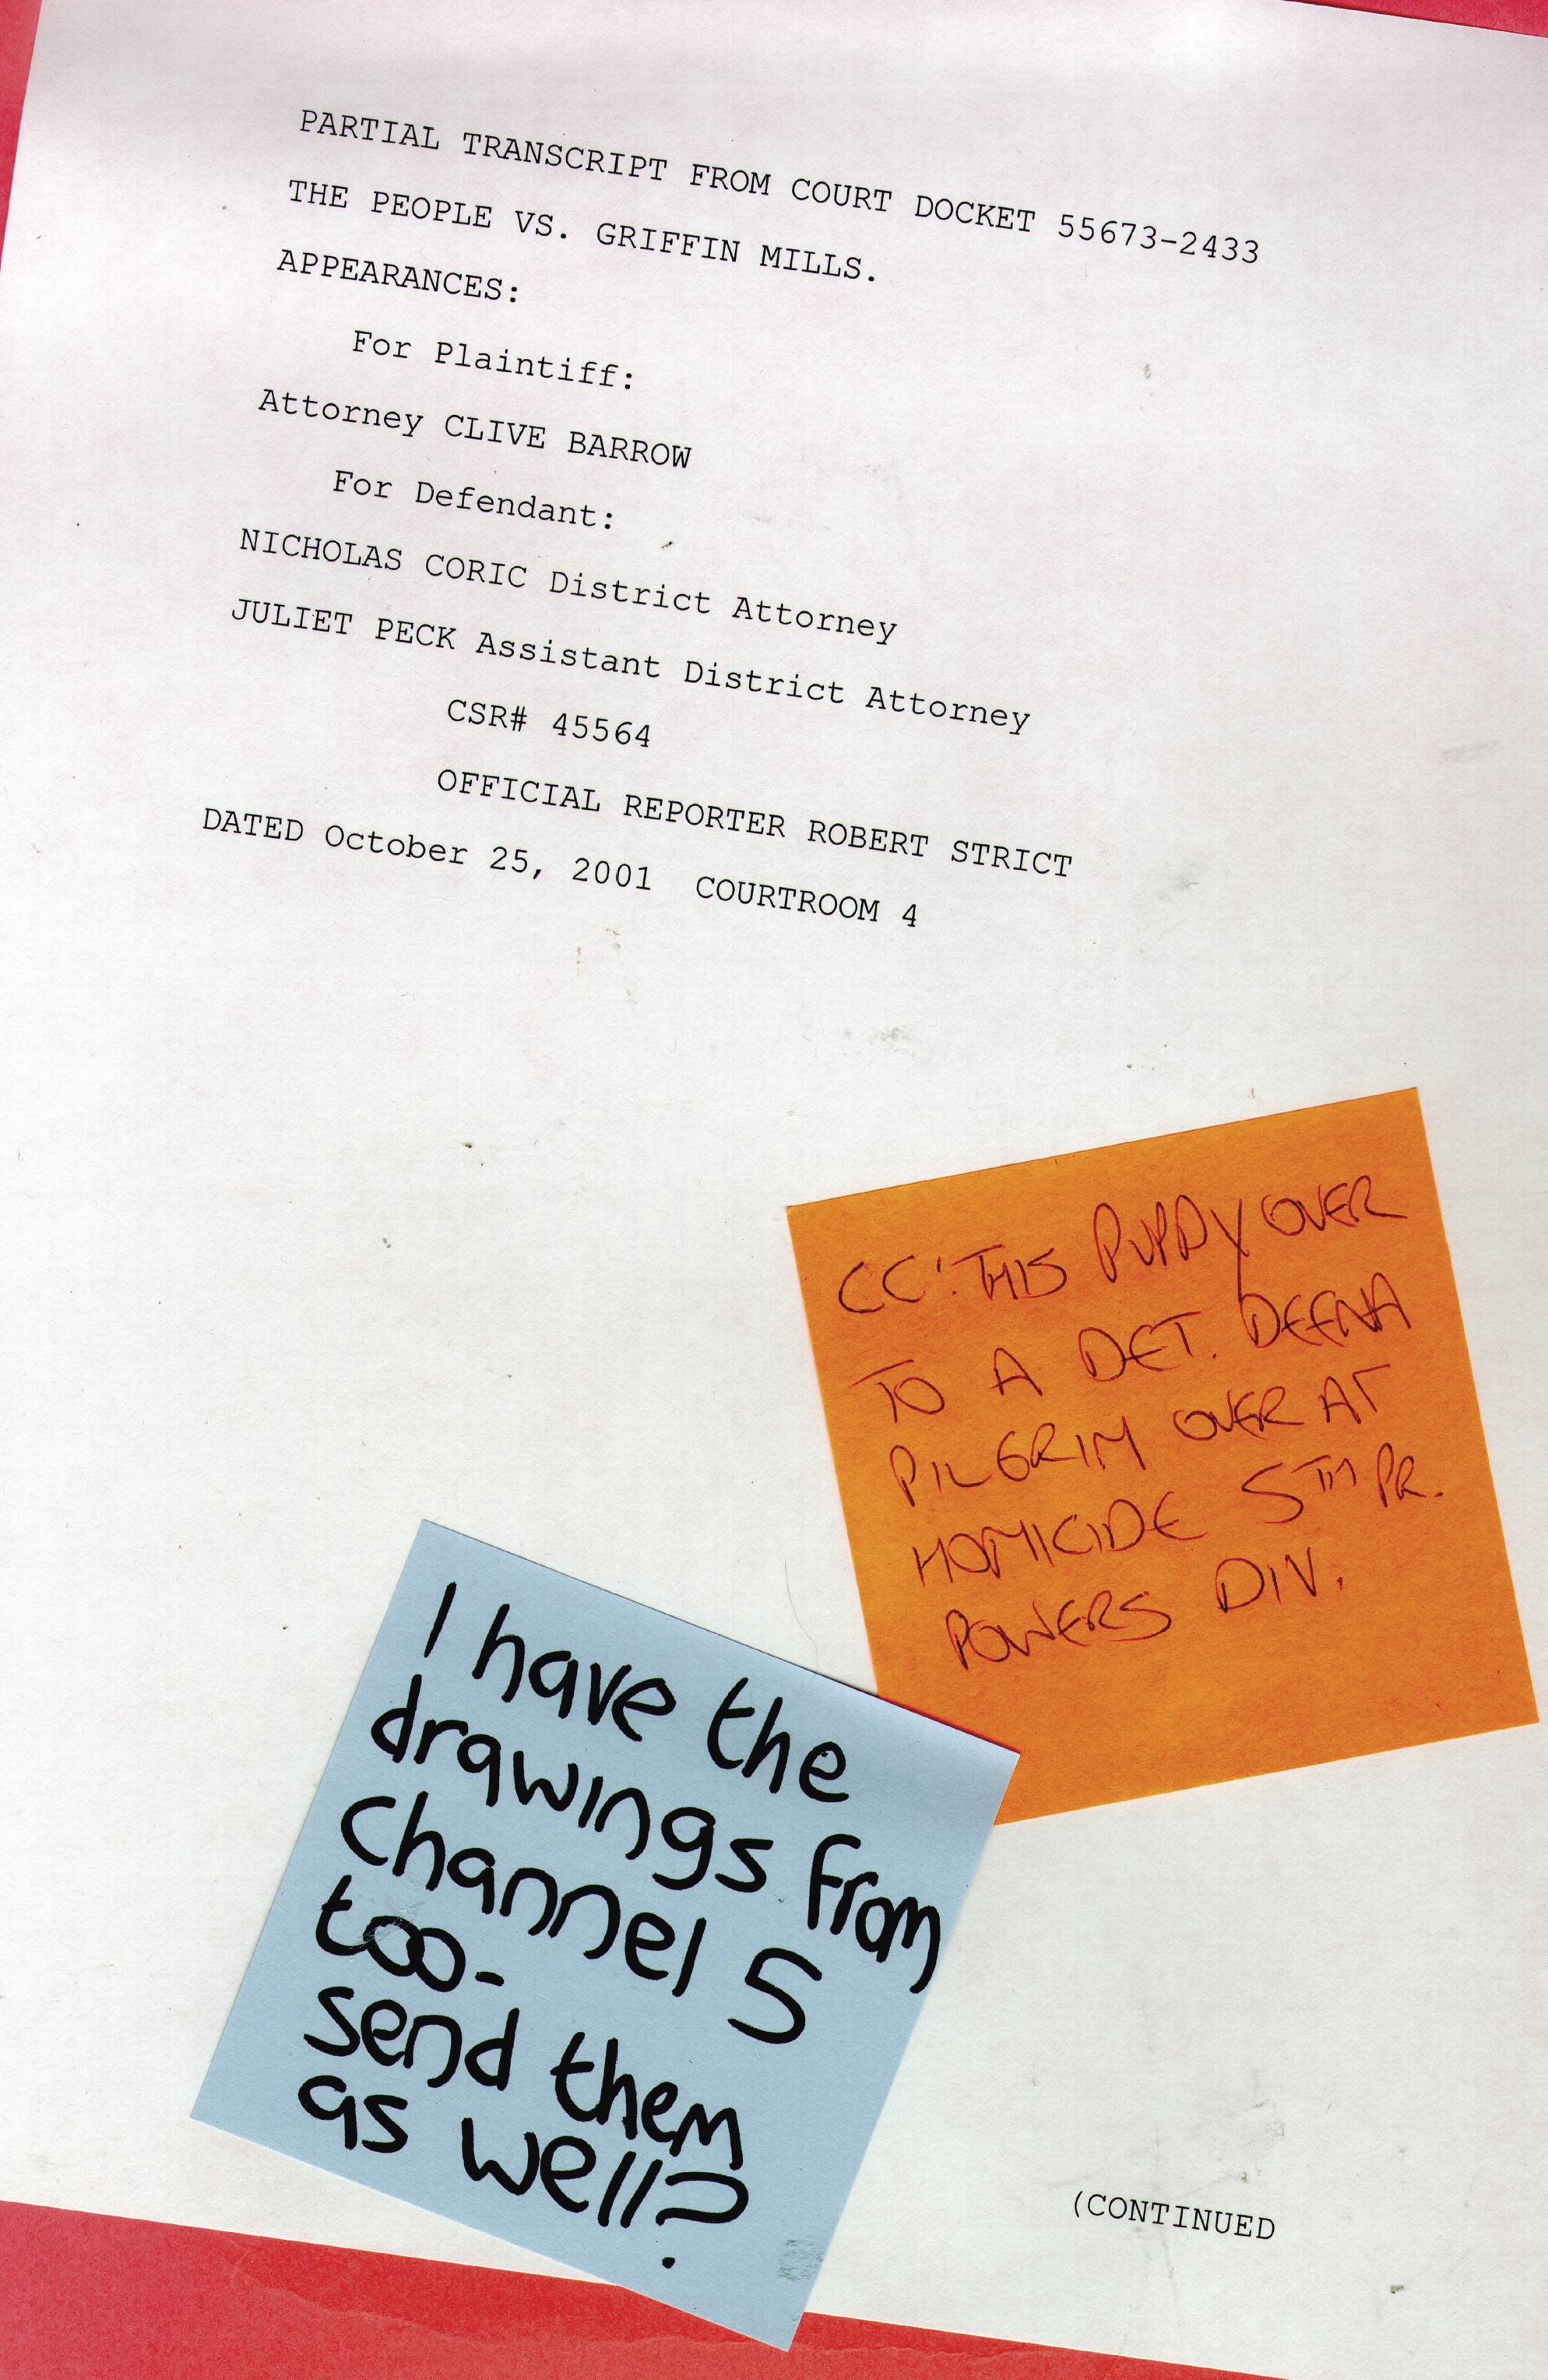 PARTIAL TRANSCRIPT FROM COURT DOCKET 55673-2433
THE PEOPLE VS. GRIFFIN MILLS.
APPEARANCES:
For Plaintiff:
Attorney CLIVE BARROW
For Defendant:
NICHOLAS CORIC District Attorney
JULIET PECK Assistant District Attorney
CSR# 45564
OFFICIAL REPORTER ROBERT STRICT
DATED October 25, 2001 COURTROOM 4
CC: THIS PUPPY OVER
TO A DET. DEENA
PILGRIM OVER AT
HOMICIDE 5TH PR.
POWERS DIV.
I have the
drawings from
channel 5
too-
send them
as well?
(CONTINUED